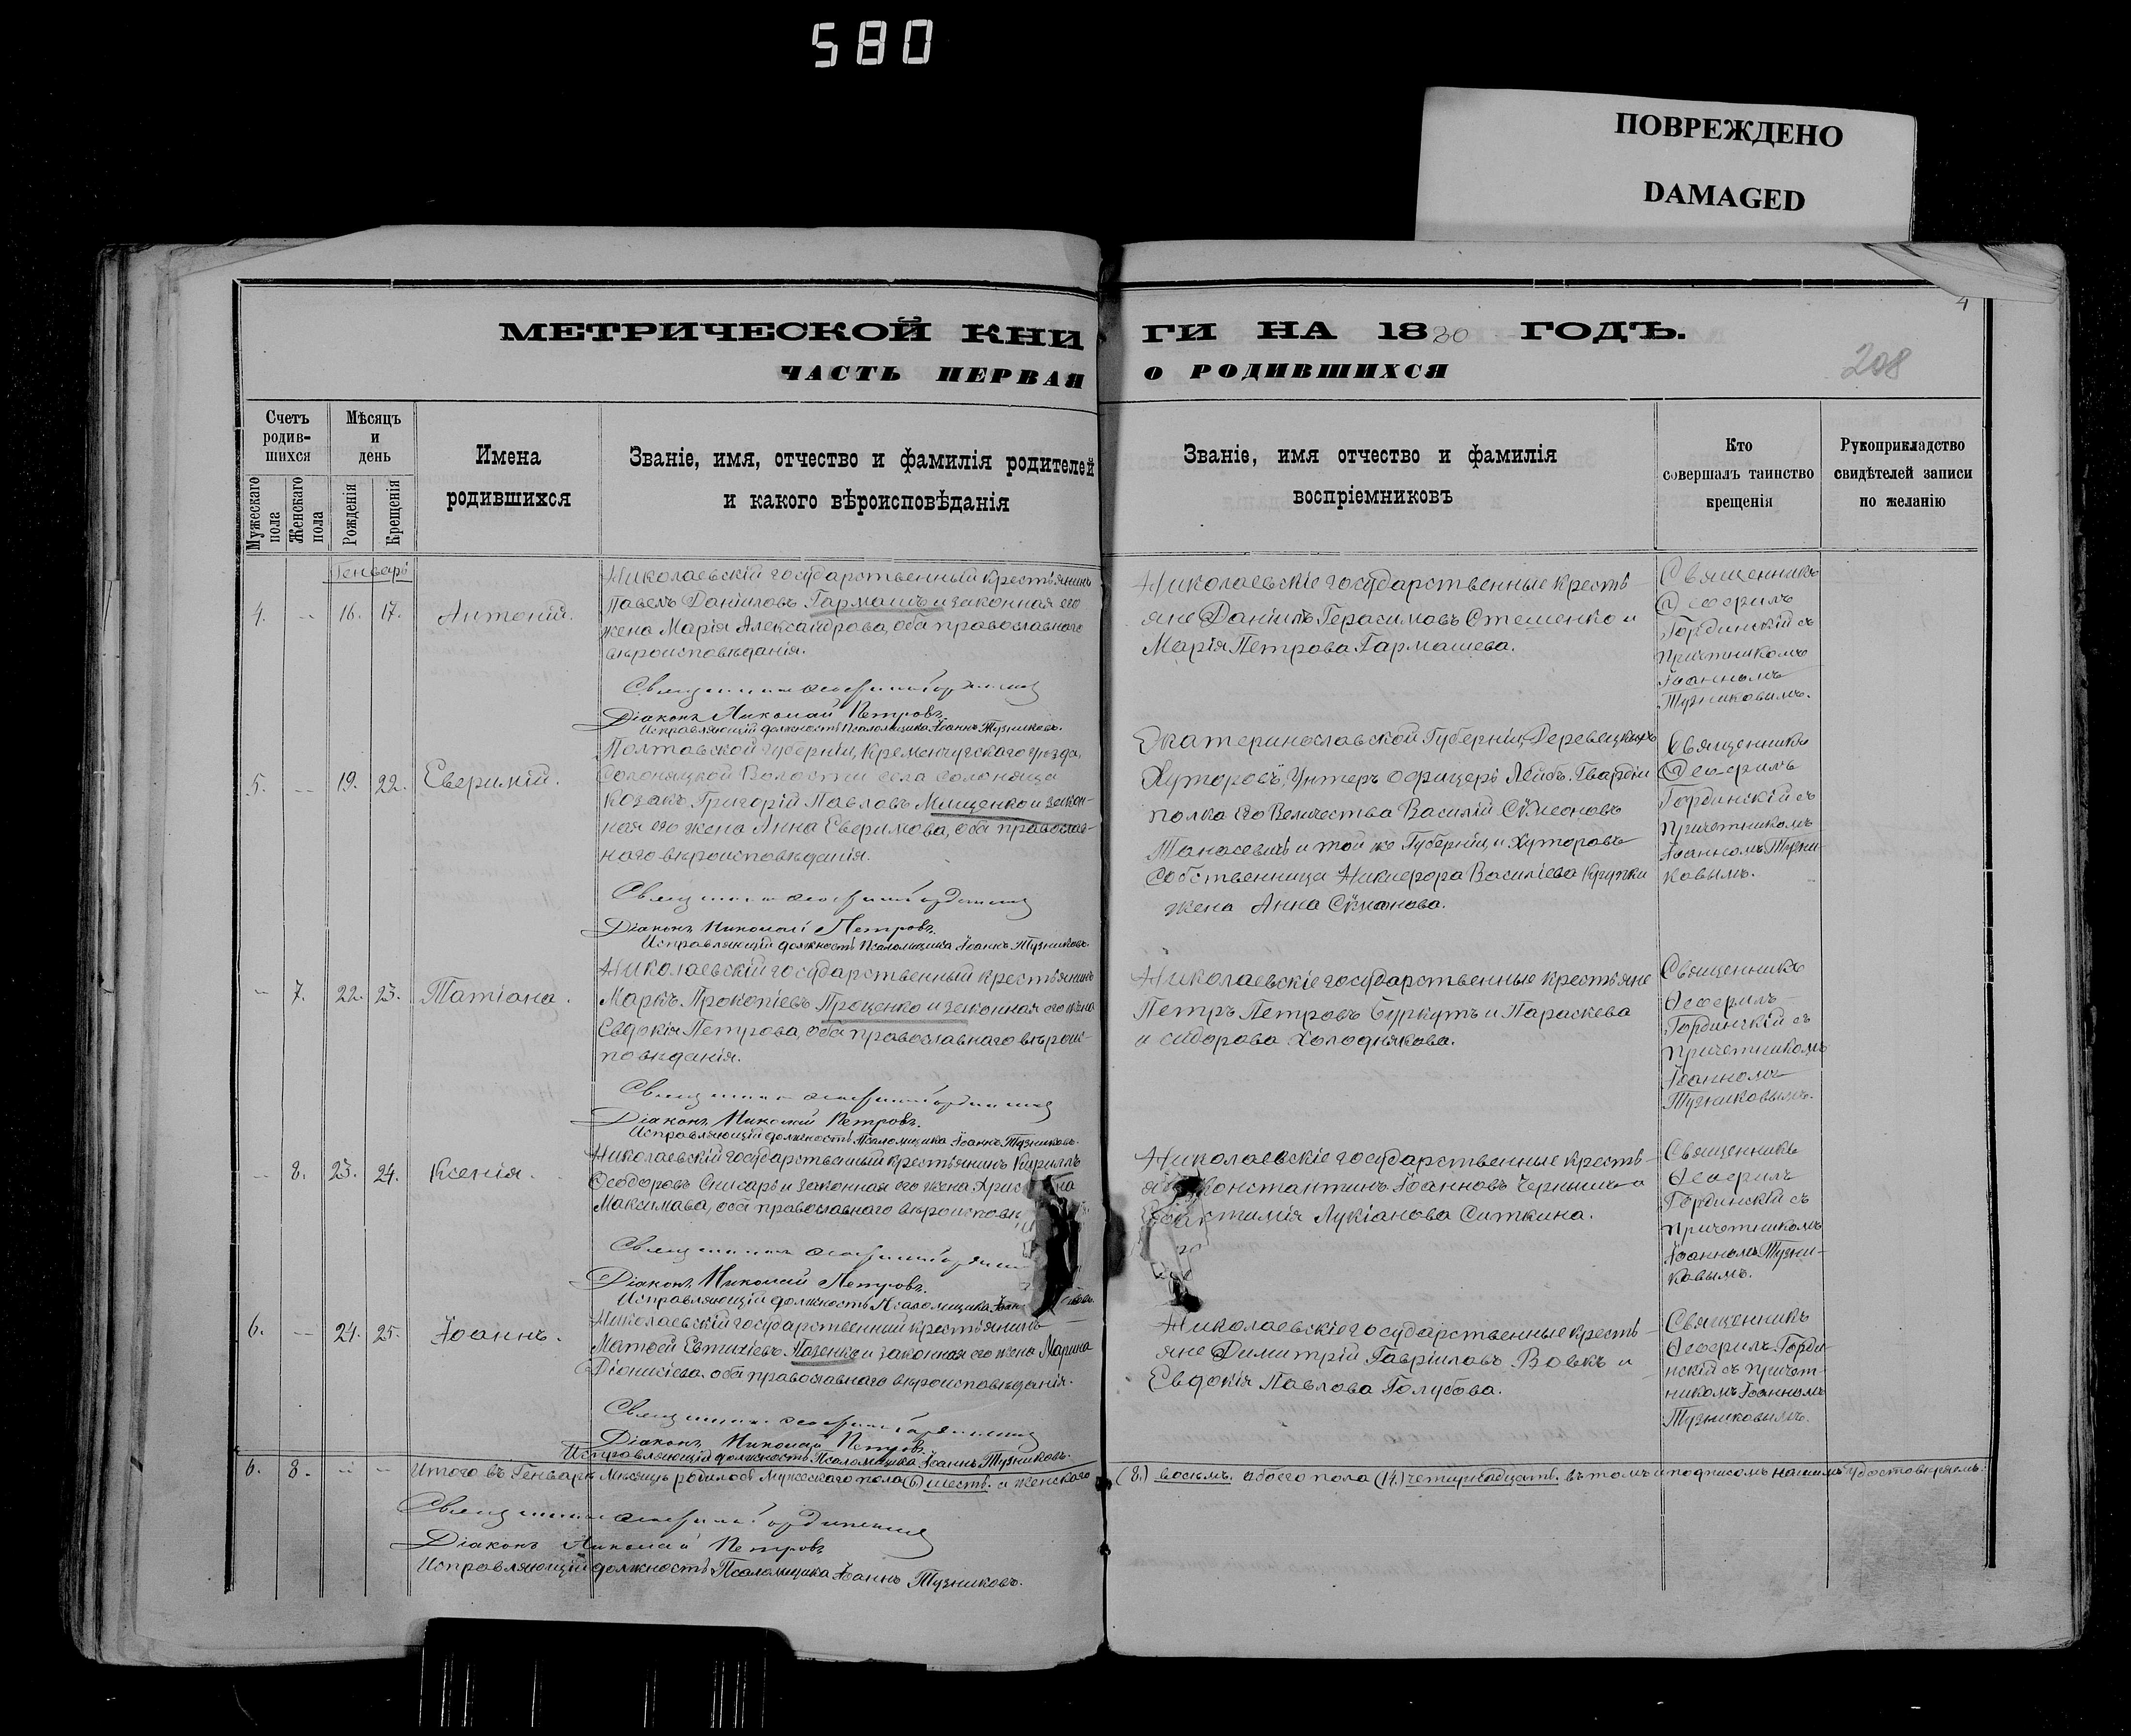 580
ПОВРЕЖДЕНО
DAMAGED
4
МЕТРИЧЕСКОЙ КНИ ГИ НА 1880 ГОДЪ.
208
ЧАСТЬ ПЕРВАЯ О РОДИВШИХСЯ
Счетъ родив-шихся
Мужескаго пола
Женскаго пола
Мѣсяцъ и день
Рожденія
Крещенія
Имена родившихся
Званіе, имя, отчество и фамилія родителей
и какого вѣроисповѣданія
Званіе, имя отчество и фамилія
воспріемниковъ
Кто
совершалъ таинство
крещенія
Рукоприкладство
свидѣтелей записи
по желанію
Генварь
4. -- 16. 17. Антоній.
Николаевскій государственный крестьянинъ
Павелъ Даніиловъ Гармашъ и законная его
жена Марія Александрова, оба православнаго
вѣроисповѣданія.
Николаевскіе государственные кресть-
яне Даніилъ Герасимовъ Стешенко и
Марія Петрова Гармашева.
Священникъ
Ѳеофилъ
Гординскій съ
причетникомъ
Іоанномъ
Тузниковымъ.
Діаконъ Николай Петровъ.
Исправляющій должность Псаломщика Іоаннъ Тузниковъ.
5. -- 19. 22. Евфимій.
Полтавской губерніи, Кременчугскаго уѣзда,
Солоницкой Волости села Солоница
козакъ Григорій Павловъ Мищенко и закон-
ная его жена Анна Евфимова, оба православ-
наго вѣроисповѣданія.
Екатеринославской Губерніи, Деревецкихъ
Хуторовъ, Унтеръ офицеръ Лейбъ. Гвардіи
полка Его Величества Василій Сѵмеоновъ
Танасевичъ и той же Губерніи, и Хуторовъ
Собственница Никифора Василіева Кружки
жена Анна Сѵмонова.
Священникъ
Ѳеофилъ
Гординскій съ
причетникомъ
Іоанномъ Тузни-
ковымъ.
Діаконъ Николай Петровъ.
Исправляющій должность Псаломщика Іоаннъ Тузниковъ.
-- 7. 22. 23. Татіана.
Николаевскій государственный крестьянинъ
Маркъ Прокопіевъ Проценко и законная его жена
Евдокія Петрова, оба православнаго вѣроис-
повѣданія.
Николаевскіе государственные крестьяне
Петръ Петровъ Буркутъ и Параскева
Исидорова Холоднякова.
Священникъ
Ѳеофилъ
Гординскій съ
причетникомъ
Іоанномъ
Тузниковымъ.
Діаконъ Николай Петровъ.
Исправляющій должность Псаломщика Іоаннъ Тузниковъ.
-- 8. 23. 24. Ксенія.
Николаевскій государственный крестьянинъ Кириллъ
Ѳеодоровъ Снисарь и законная его жена Христина
Максимова, оба православнаго вѣроисповѣ
Николаевскіе государственные кресть-
яне Константинъ Іоанновъ Чернышъ и
Лукіанова Ситкина.
Священникъ
Ѳеофилъ
Гординскій съ
причетникомъ
Іоанномъ Тузни-
ковымъ.
Діаконъ Николай Петровъ.
Исправляющій должность Псаломщика
6. -- 24. 25. Іоаннъ.
Николаевскій государственный крестьянинъ
Матѳей Евтихіевъ Лазенко и законная его жена Марина
Діонисіева, оба православнаго вѣроисповѣданія.
Николаевскіе государственные кресть-
яне Димитрій Гавріиловъ Вовкъ и
Евдокія Павлова Голубова.
Священникъ
Ѳеофилъ Горди-
нскій съ причет-
никомъ Іоанномъ
Тузниковымъ.
Діаконъ Николай Петровъ.
Исправляющій должность Псаломщика Іоаннъ Тузниковъ.
6. 8. -- -- Итого въ Генварѣ Мѣсяцѣ родилось Мужескаго пола (6) шесть. и женскаго (8.) восемь. обоего пола (14.) четырнадцать. въ томъ и подписомъ нашимъ удостовѣряемъ.
Діаконъ Николай Петровъ
Исправляющій должность Псаломщика Іоаннъ Тузниковъ.